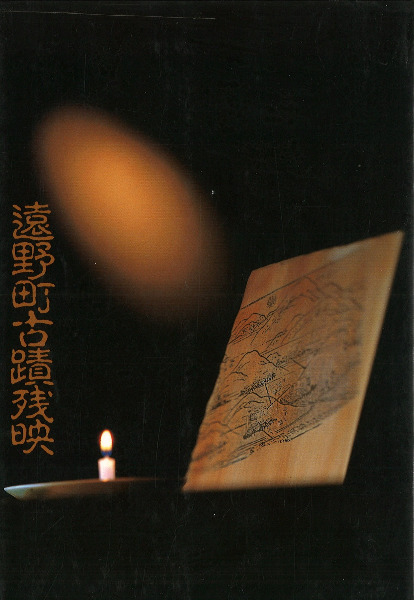 遠野町古蹟残映